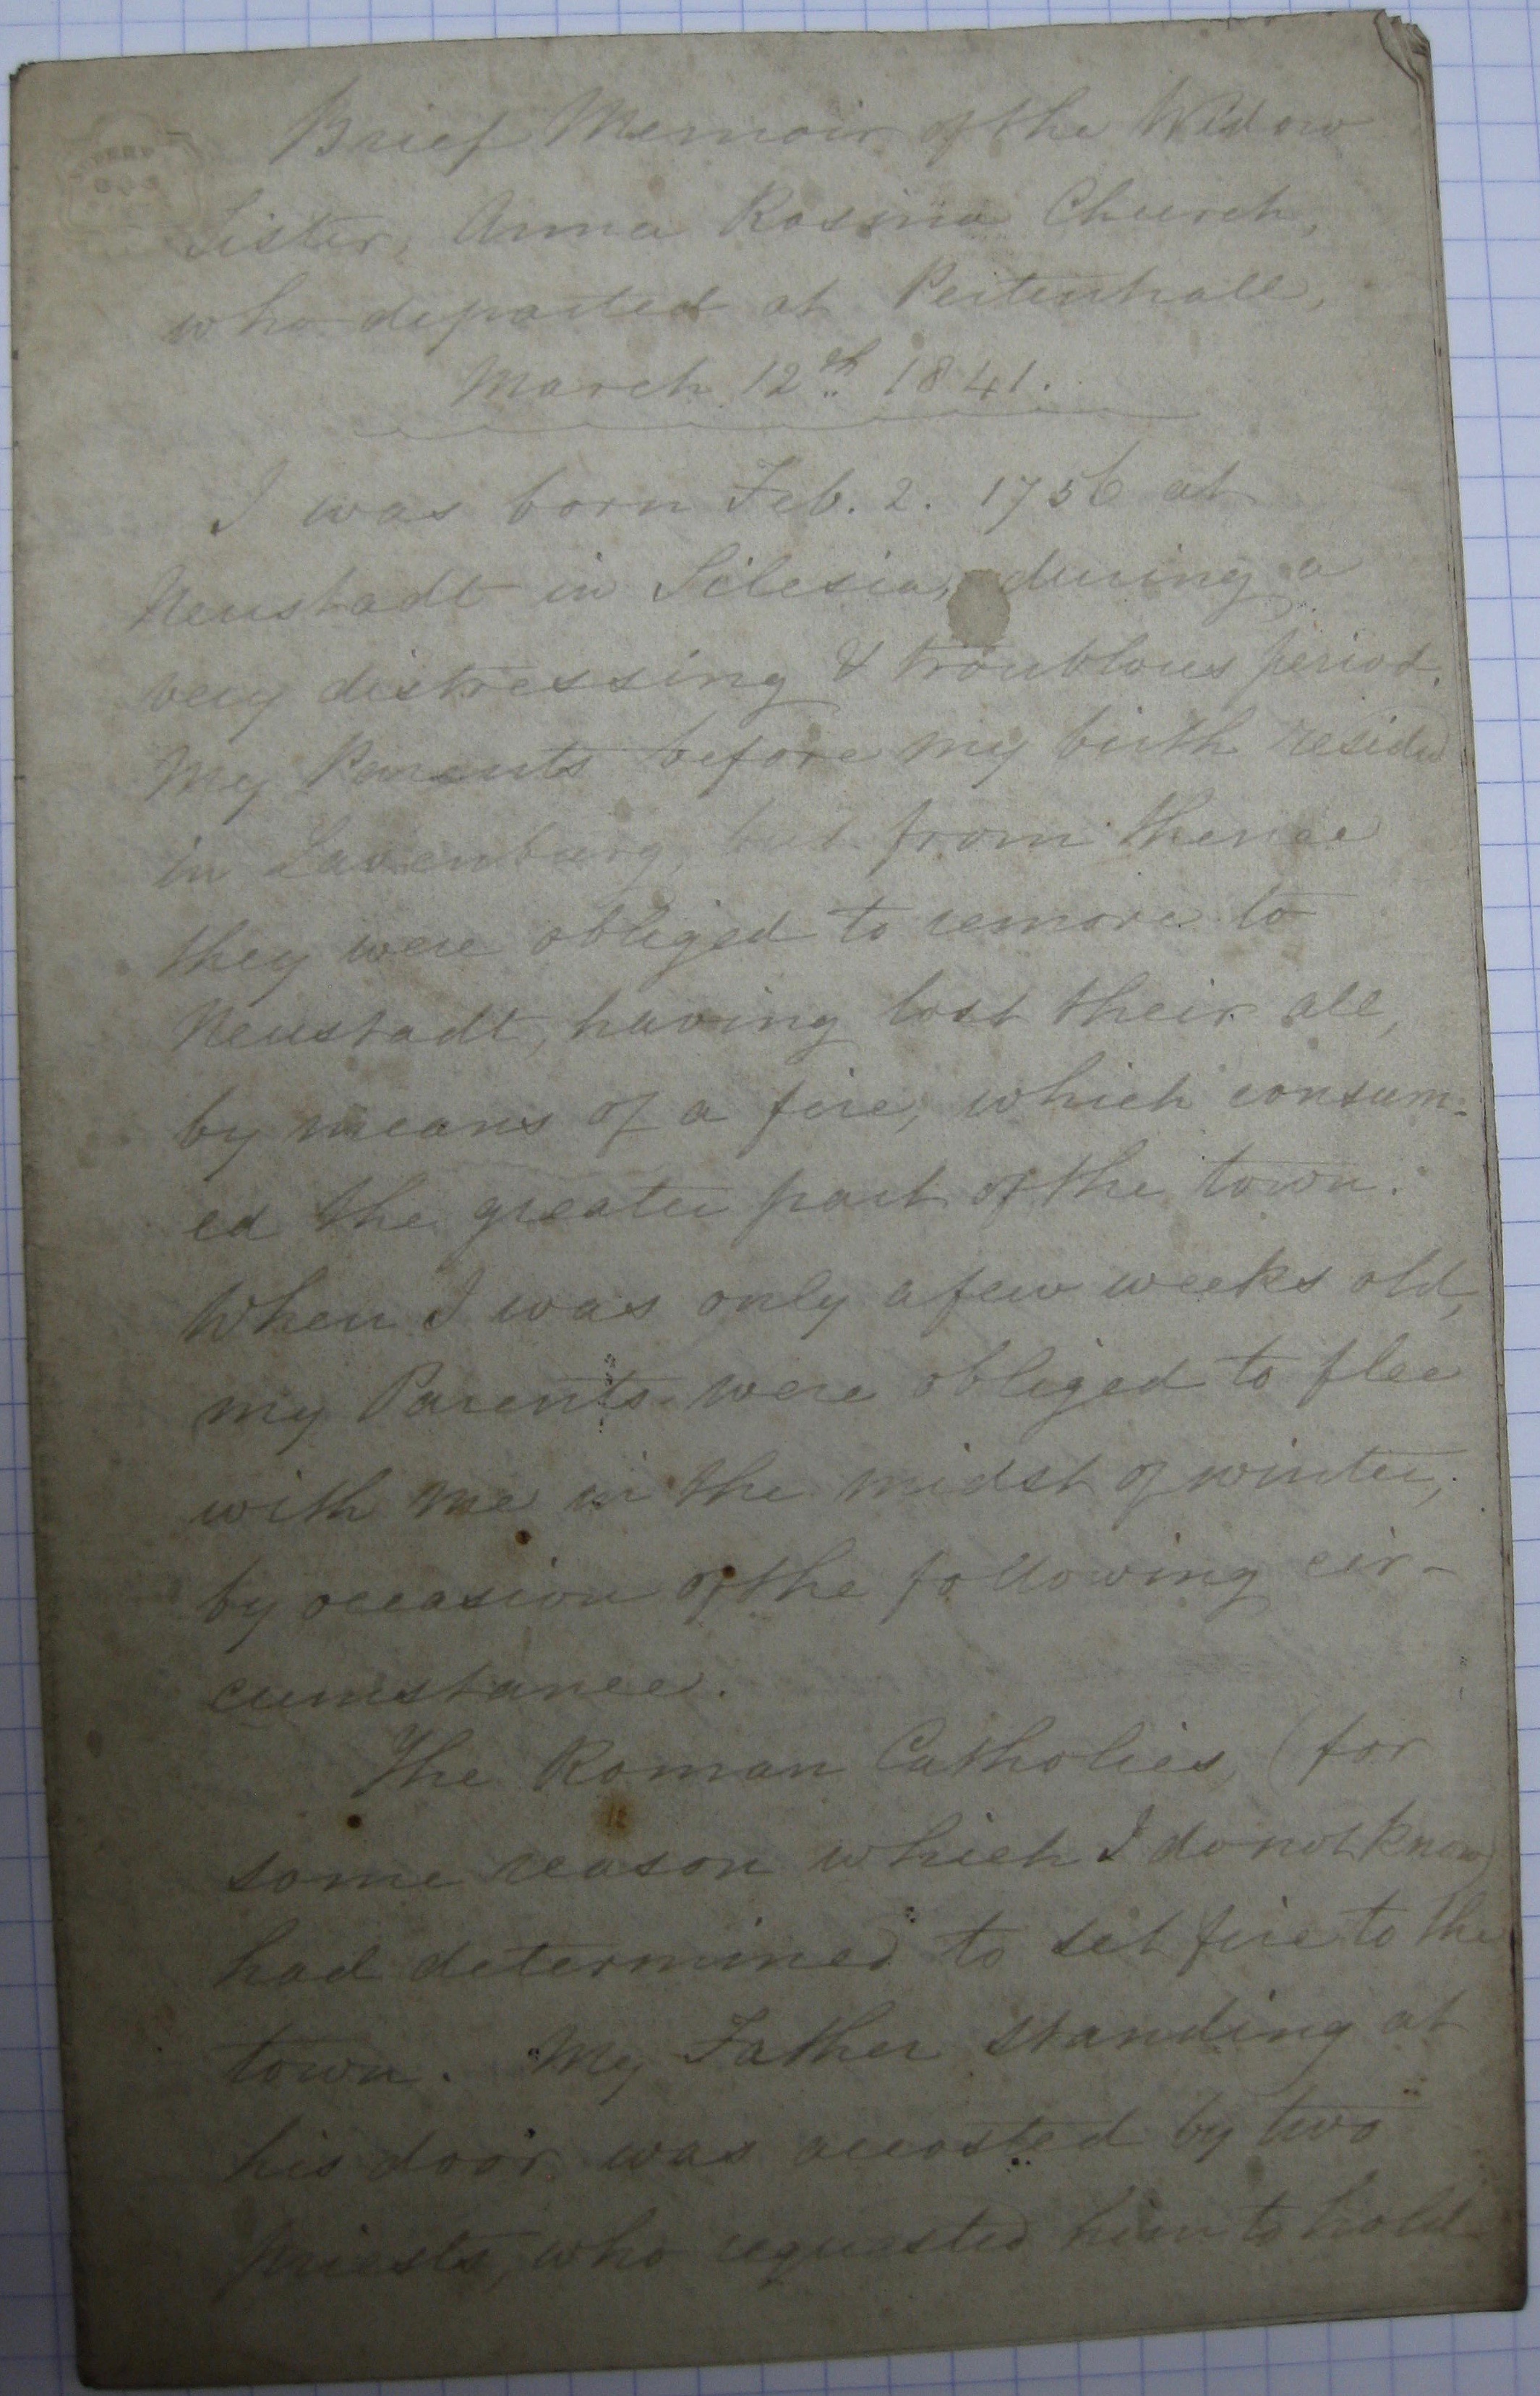 Brief Memoir of the Widow
Sister, Anna Rosina Church,
who departed at Pertenhall,
March 12th 1841.
I was born Feb. 2. 1756 at
Neustadt in Silesia, during a
very distressing & troublous period.
My Parents before my birth resided
in but from thence
they were obliged to remove to
Neustadt, having lost their all,
by means of a fire, which consum-
ed the greater part of the town.
When I was only a few weeks old,
my Parents were obliged to flee
with me in the midst of winter,
by occasion of the following cir-
cumstance.
The Roman Catholics, (for
some reason which I do not know)
had determined to set fire to the
town. My Father standing at
his door was accosted by two
priests, who requested him to hold